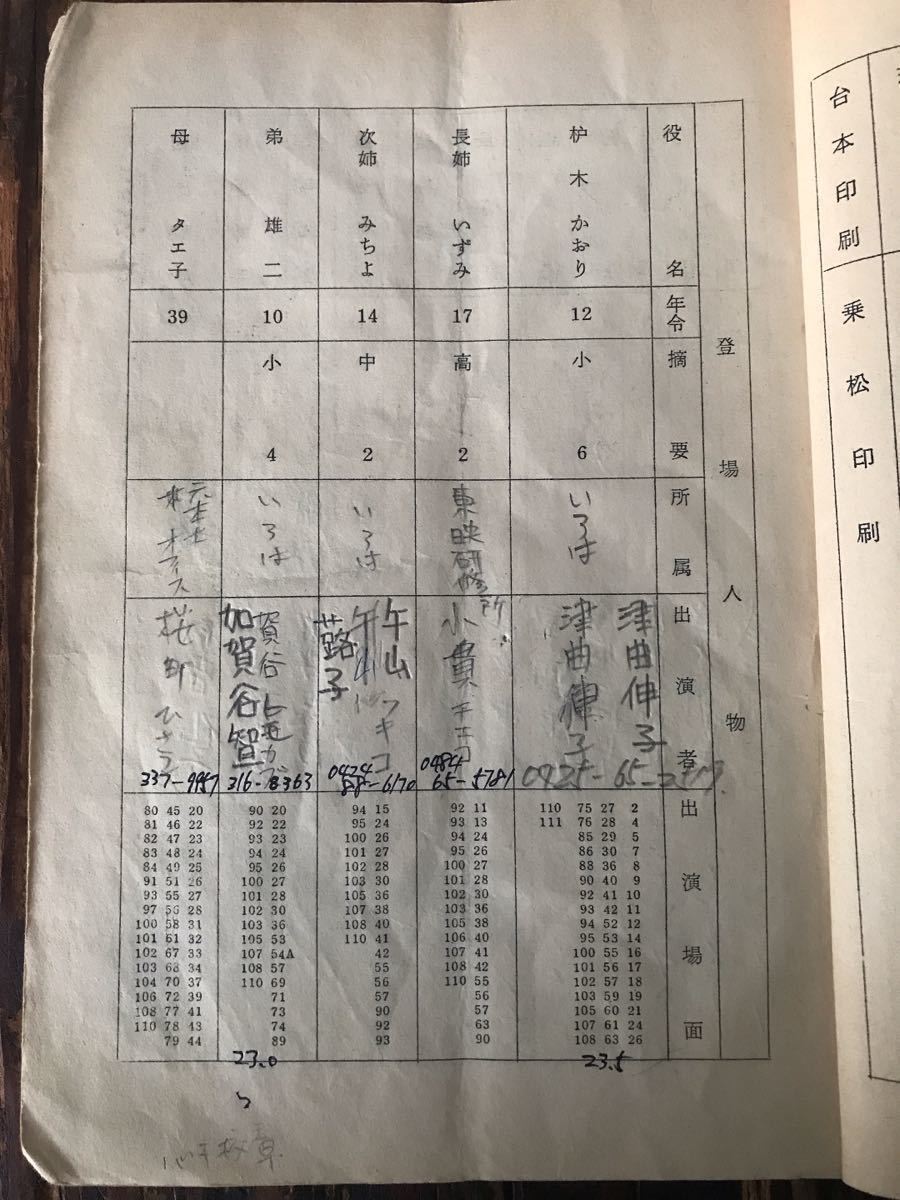 台本印刷
乗松印刷
登場人物
役名
年令
摘要
所属
出演者
出演場面
枦木かおり
12
小6
いろは
津曲伸子
津曲伸子
110 75 27 2
111 76 28 4
85 29 5
86 30 7
88 36 8
90 40 9
92 41 10
93 42 11
94 52 12
95 53 14
100 55 16
101 56 17
102 57 18
103 59 19
105 60 21
107 61 24
108 63 26
23.5
長姉いずみ
17
高2
東映研修所
0484
65-5781
92 11
93 13
94 24
95 26
100 27
101 28
102 30
103 36
105 38
106 40
107 41
108 42
110 55
56
57
63
90
次姉みちよ
14
中2
いろは
午山
蕗子
0424
88-6170
94 15
95 24
100 26
101 27
102 28
103 30
105 36
107 38
108 40
110 41
42
55
56
57
90
92
93
弟雄二
10
小4
いろは
賀谷トモカズ
加賀谷智
316-8363
90 20
92 22
93 23
94 24
95 26
100 27
101 28
102 30
103 36
105 53
107 54A
108 57
110 69
71
73
74
89
23.0
母タエ子
39
六本木
オフィス
337-9957
80 45 20
81 46 22
82 47 23
83 48 24
84 49 25
91 51 26
93 55 27
97 56 28
100 58 31
101 61 32
102 67 33
103 68 34
104 70 37
106 72 39
108 77 41
110 78 43
79 44